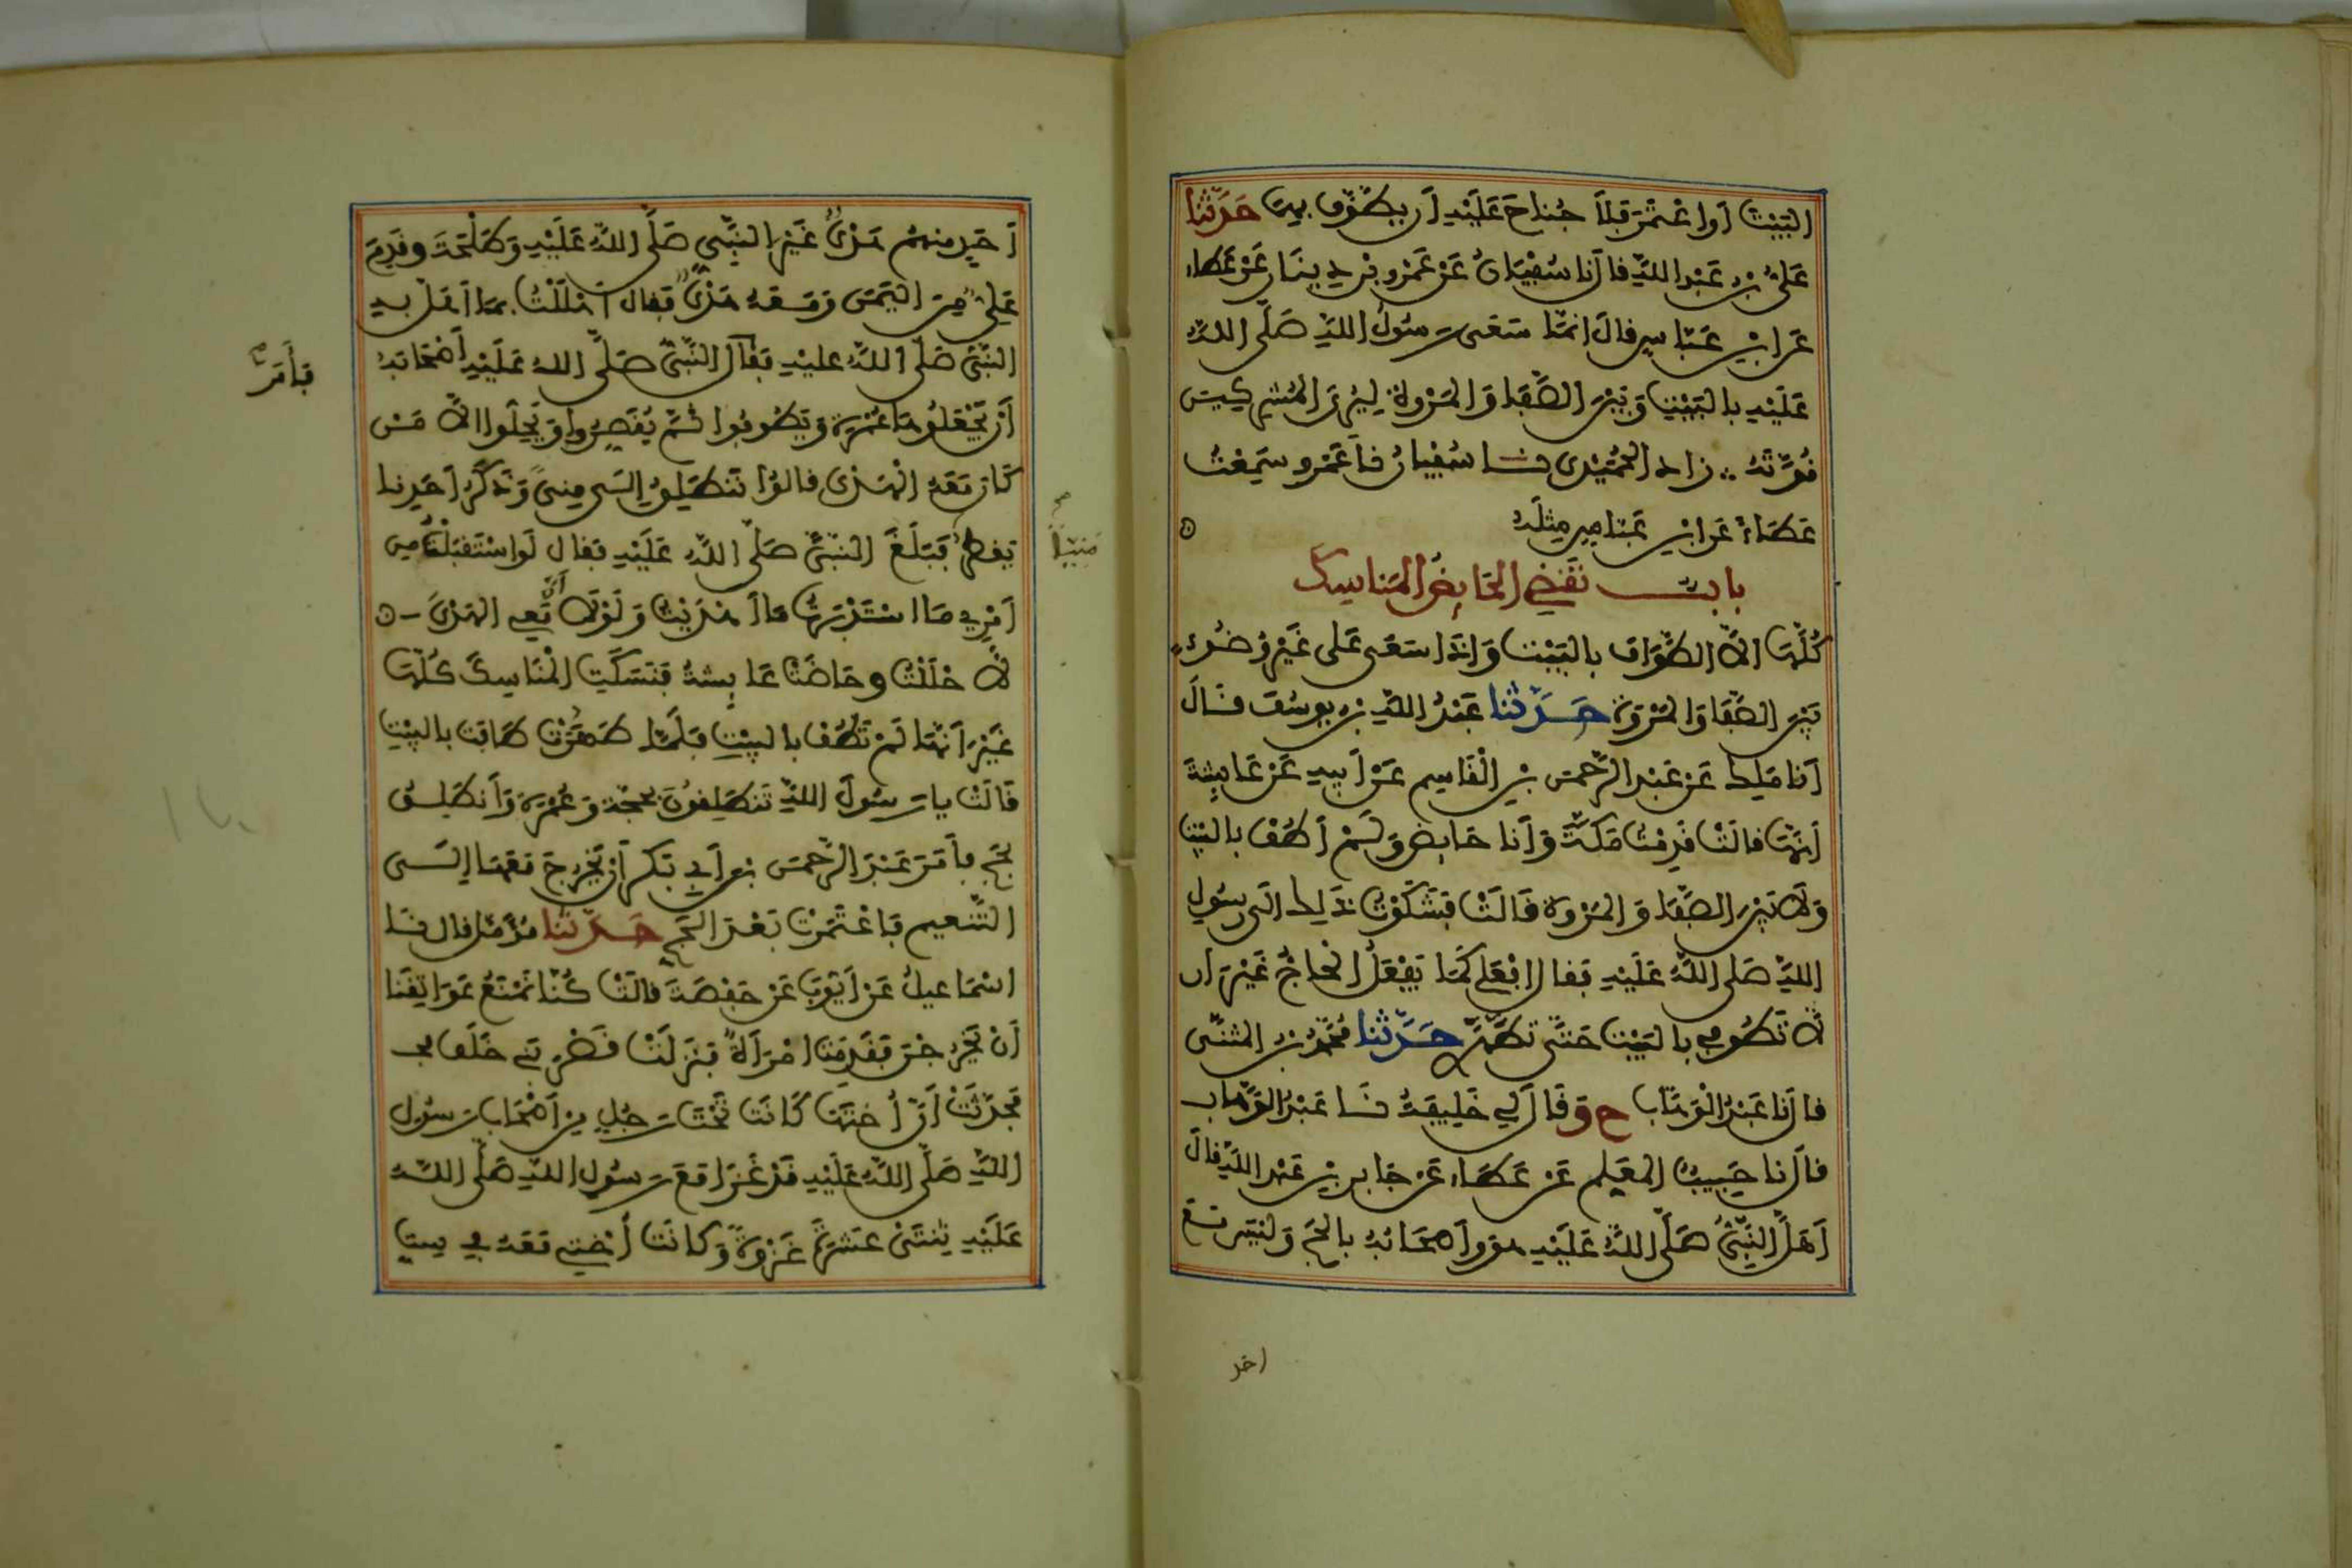 البَيْتَ أَوِ اعْتَمَرَ فَلاَ جُنَاحَ عَلَيْهِ أَن يَطَّوَّفَ بِهِمَا حَدَّثَنَا
عَلِيُّ بْنُ عَبْدِ اللَّهِ قال أَنا سُفْيَانُ عَنْ عَمْرِو بْنِ دِينَارٍ عَنْ عَطَاء
عَنِ ابْنِ عَبَّاسٍ قالَ إِنَّمَا سَعَى رَسُولُ اللَّهِ صَلَّى اللَّهُ
عَلَيْهِ بِالْبَيْتِ وَبَيْنَ الصَّفَا وَالْمَرْوَةِ لِيُرِيَ الْمُشْرِكِينَ
قُوَّتَهُ زاد الحُمَيْدِي نا سُفْيَانُ نا عَمْرو سَمِعْتُ
عَطَاءً عَنِ ابْنِ عَبَّاسٍ مِثْلَهُ
باب تَقْضِي الحَائِضُ الْمَنَاسِكَ
كُلَّهَا إِلاَّ الطَّوَافَ بِالْبَيْتِ وَإِذَا سَعَى عَلَى غَيْرِ وُضُوءٍ
بَيْنَ الصَّفَا وَالمَرْوَةِ حَدَّثَنَا عَبْدُ اللَّهِ بْنُ يُوسُفَ قَالَ
أَنا مَلِك عَنْ عَبْدِ الرَّحْمَنِ بْنِ الْقَاسِمِ عَنْ أَبِيهِ عَنْ عَائِشَةَ
أَنَّهَا قالَتْ قَدِمْتُ مَكَّةَ وَأَنَا حَائِض وَلَمْ أَطُفْ بِالْبَيْتِ
وَلاَ بَيْنَ الصَّفَا وَالمَرْوَةِ قَالَتْ فَشَكَوْتُ ذَلِكَ إِلَى رَسُولِ
اللَّهِ صَلَّى اللَّهُ عَلَيْهِ فَقال افْعَلِي كَمَا يَفْعَلُ الْحَاجُّ غَيْرَ أَن
لاَّ تَطُوفِي بِالْبَيْتِ حَتَّى تَطَهَّرِي حَدَّثَنَا مُحَمَّدُ بْنُ المثنَّى
قال أَنَا عَبْدُ الْوَهَّاب ح وَقَالَ لِي خَلِيفَةُ نَا عَبْدُ الوَهَّاب
قالَ نا حَبِيبٌ المعَلِّم عَنْ عَطَاء عَنْ جَابِرِ بْنِ عَبْدِ اللَّهِ قالَ
أَهَلَّ النَّبِيُّ صَلَّى اللَّهُ عَلَيْهِ هو وأَصْحَابُهُ بِالْحَجِّ وَلَيْسَ مَعَ
احد
أَحَدٍ مِنْهُمْ هَدْيٌ غَيْرَ النَّبِيِّ صَلَّى اللَّهُ عَلَيْهِ وَطَلْحَةَ وقَدِمَ
عَلِيٌّ مِنَ الْيَمَنِ وَمَعَهُ هَدْيٌ فَقال أَهْلَلْتُ بِمَا أَهَلَّ بِهِ
النَّبِيُّ صَلَّى اللَّهُ عليْهِ فَقالَ النَّبِيُّ صَلَّى اللهُ عَلَيْهِ أَصْحَابَهُ
فَأَمَرَ
أَنْ يَجْعَلُوهَا عُمْرَةً وَيَطُوفُوا ثُمَّ يُقَصِّرُوا وَيَحِلُّوا إِلاَّ مَنْ
كَانَ مَعَهُ الْهَدْيُ فَقالُوا نَنْطَلِقُ إِلَى مِنىً وَذَكَرُ أَحَدِنَا
يَقْطُرُ فَبَلَغَ النَّبِيَّ صَلَّى اللَّهُ عَلَيْهِ فَقال لَوِ اسْتَقْبَلْتُ مِن
مَنِيّاً
أَمْرِي مَا اسْتَدْبَرْتُ مَا أَهْدَيْتُ وَلَوْلاَ أَنَّ مَعِي الهَدْيَ
لاَ حْلَلْتُ وحَاضَتْ عَائِشَةُ فَنَسَكَتِ الْمَنَاسِكَ كُلَّهَا
غَيْرَ أَنَّهَا لَمْ تَطُفْ بالبيْتِ فَلَمَّا طَهُرَتْ طَافَتْ بالبَيْتِ
قَالَتْ يا رَسُولَ اللَّهِ تَنْطَلِقُونَ بِحَجَّةٍ وَعُمْرَةٍ وَأَنْطَلِقُ
بِحَجٍّ فأَمَرَ عَبْدَ الرَّحْمَنِ بْنَ أَبِي بَكْرٍ أَنْ يَخْرُجَ مَعَهَا إِلَى
التَّنْعِيمِ فَاعْتَمَرَتْ بَعْدَ الحَجِّ حَدَّثَنَا مُؤَمَّل قال نَا
إسْمَاعِيلُ عَنْ أَيُّوبَ عَنْ حَفْصَةَ قالَتْ كُنَّا نَمْنَعُ عَوَاتِقَنَا
أَنْ يَخْرُجْنَ فَقَدِمَتِ امْرَأَةٌ فَنَزَلَتْ قَصْرَ بَنِي خَلَف
فَحَدَّثَتْ أَنَّ أُخْتَهَا كَانَتْ تَحْتَ رَجُلٍ مِنْ أَصْحَابِ رَسُولِ
اللَّهِ صَلَّى اللَّهُ عَلَيْهِ قَدْ غَزَا مَعَ رَسُولِ اللَّهِ صَلَّى اللَّهُ
عَلَيْهِ ثِنْتَيْ عَشْرَةَ غَزْوَةً وَكَانَتْ أُخْتِي مَعَهُ فِي سِتِّ